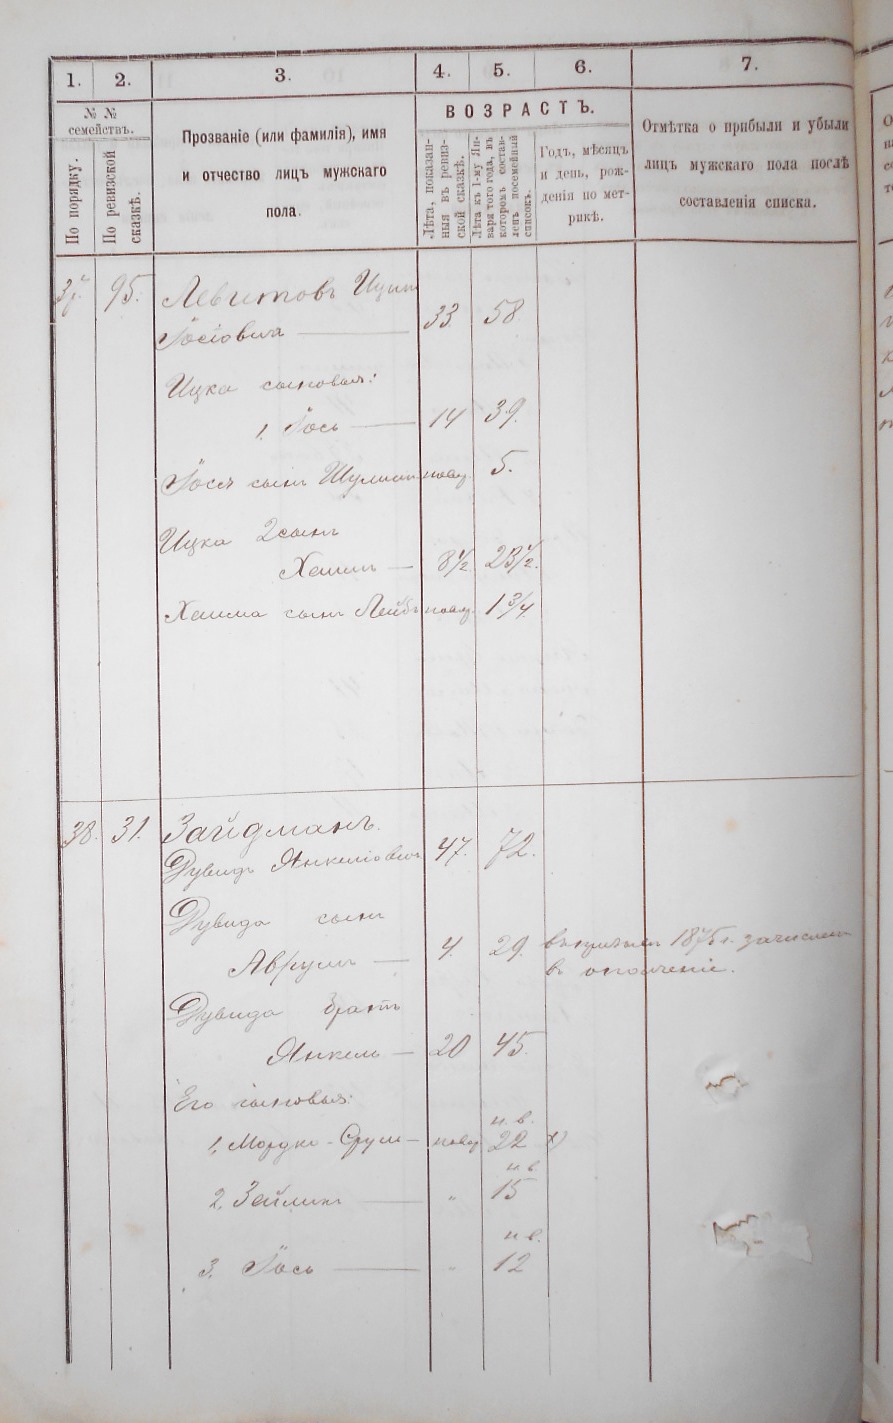 1. 2. 3. 4. 5. 6. 7.
№ №
семействъ.
По порядку.
По ревизской
сказкѣ.
Прозваніе (или фамилія), имя
и отчество лицъ мужскаго
пола.
ВОЗРАСТЪ.
Лѣта, показан-
ныя въ ревиз-
ской сказкѣ.
Лѣта къ 1-му Ян-
варя того года, въ
которомъ состав-
ленъ посемейный
списокъ.
Годъ, мѣсяцъ
и день, рож-
денія по мет-
рикѣ.
Отмѣтка о прибыли и убыли
лицъ мужскаго пола послѣ
составленія списка.
95. Левитовъ Ицик
Іосіовичъ 33 58
Ицка сыновья:
1. Іось 14 39.
Іося сынъ новор. 5.
Ицка 2 сынъ
Хаимъ 8 1/2 23 1/2.
Хаима сынъ Лейбъ новор. 1 3/4.
38. 31. Зайдманъ.
Дувидъ Янкеліовичъ 47. 72.
Дувида сынъ
Аврумъ 4. 29. 1875 г. зачисленъ
въ ополченіе.
Дувида братъ
Янкель 20 45.
Его сыновья:
н. в.
1, Мордко-Срул новор 22 х)
н в
2, Зейликъ " 15
н в.
3, Іось " 12